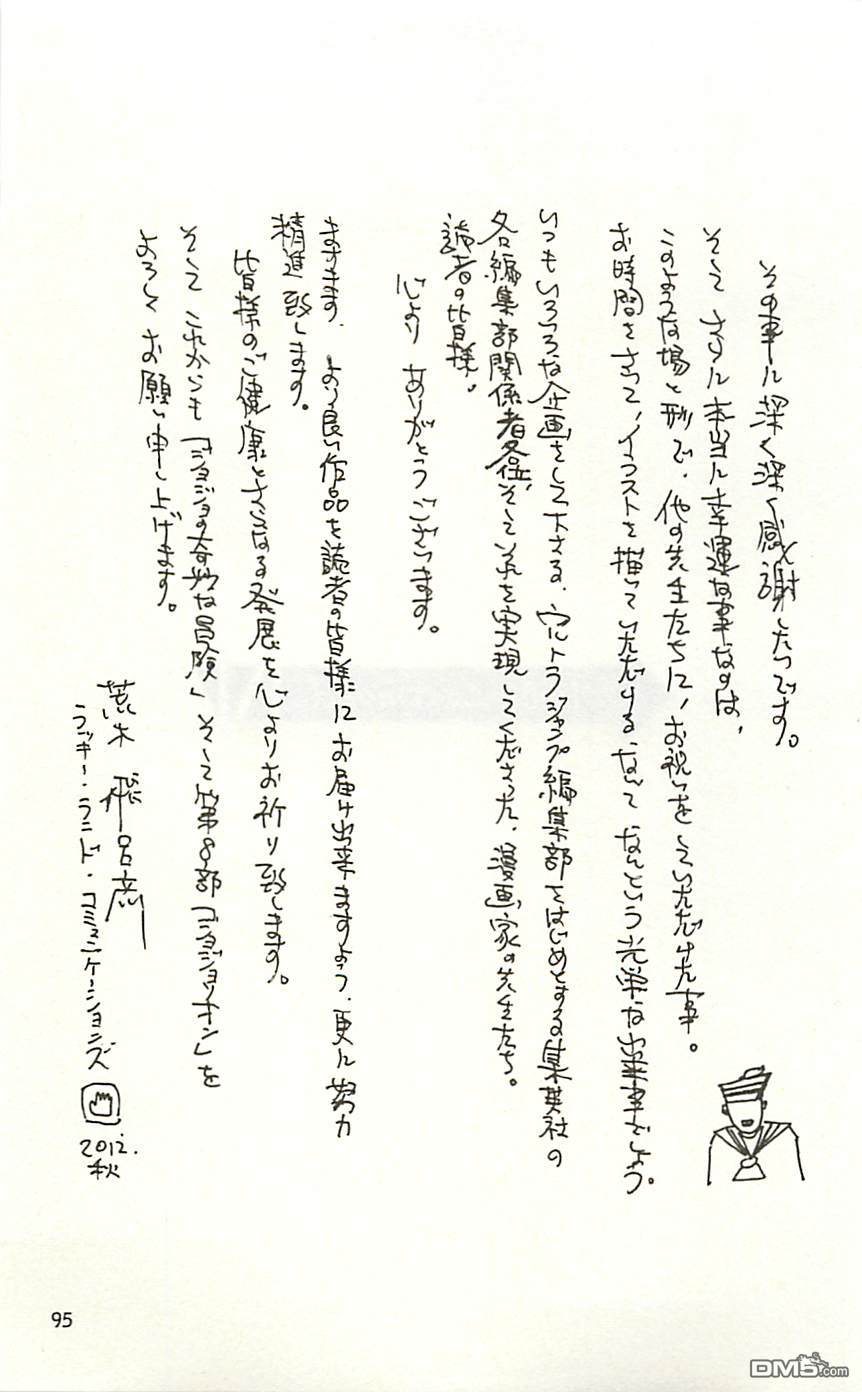 その事に深く深く感謝したいです。
そして さらに本当に幸運な事なのは、
このような場と形で、他の先生たちに、お祝いをしていただけた事。
お時間をさいて、イラストを描いていただける なんて なんという光栄な出来事でしょう。
いつもいろいろな企画をして下さる、ウルトラジャンプ編集部をはじめとする集英社の
各編集部関係者各位、そしてそれを実現してくださった、漫画家の先生たち。
読者の皆様。
心より ありがとうございます。
ますます、より良い作品を読者の皆様にお届け出来ますよう、更に努力
精進致します。
皆様のご健康とさらなる発展を心よりお祈り致します。
そして これからも「ジョジョの奇妙な冒険」そして第8部「ジョジョリオン」を
よろしくお願い申し上げます。
荒木 飛呂彦
ラッキー・ランド・コミュニケーションズ
2012.
秋
95
DM5.com